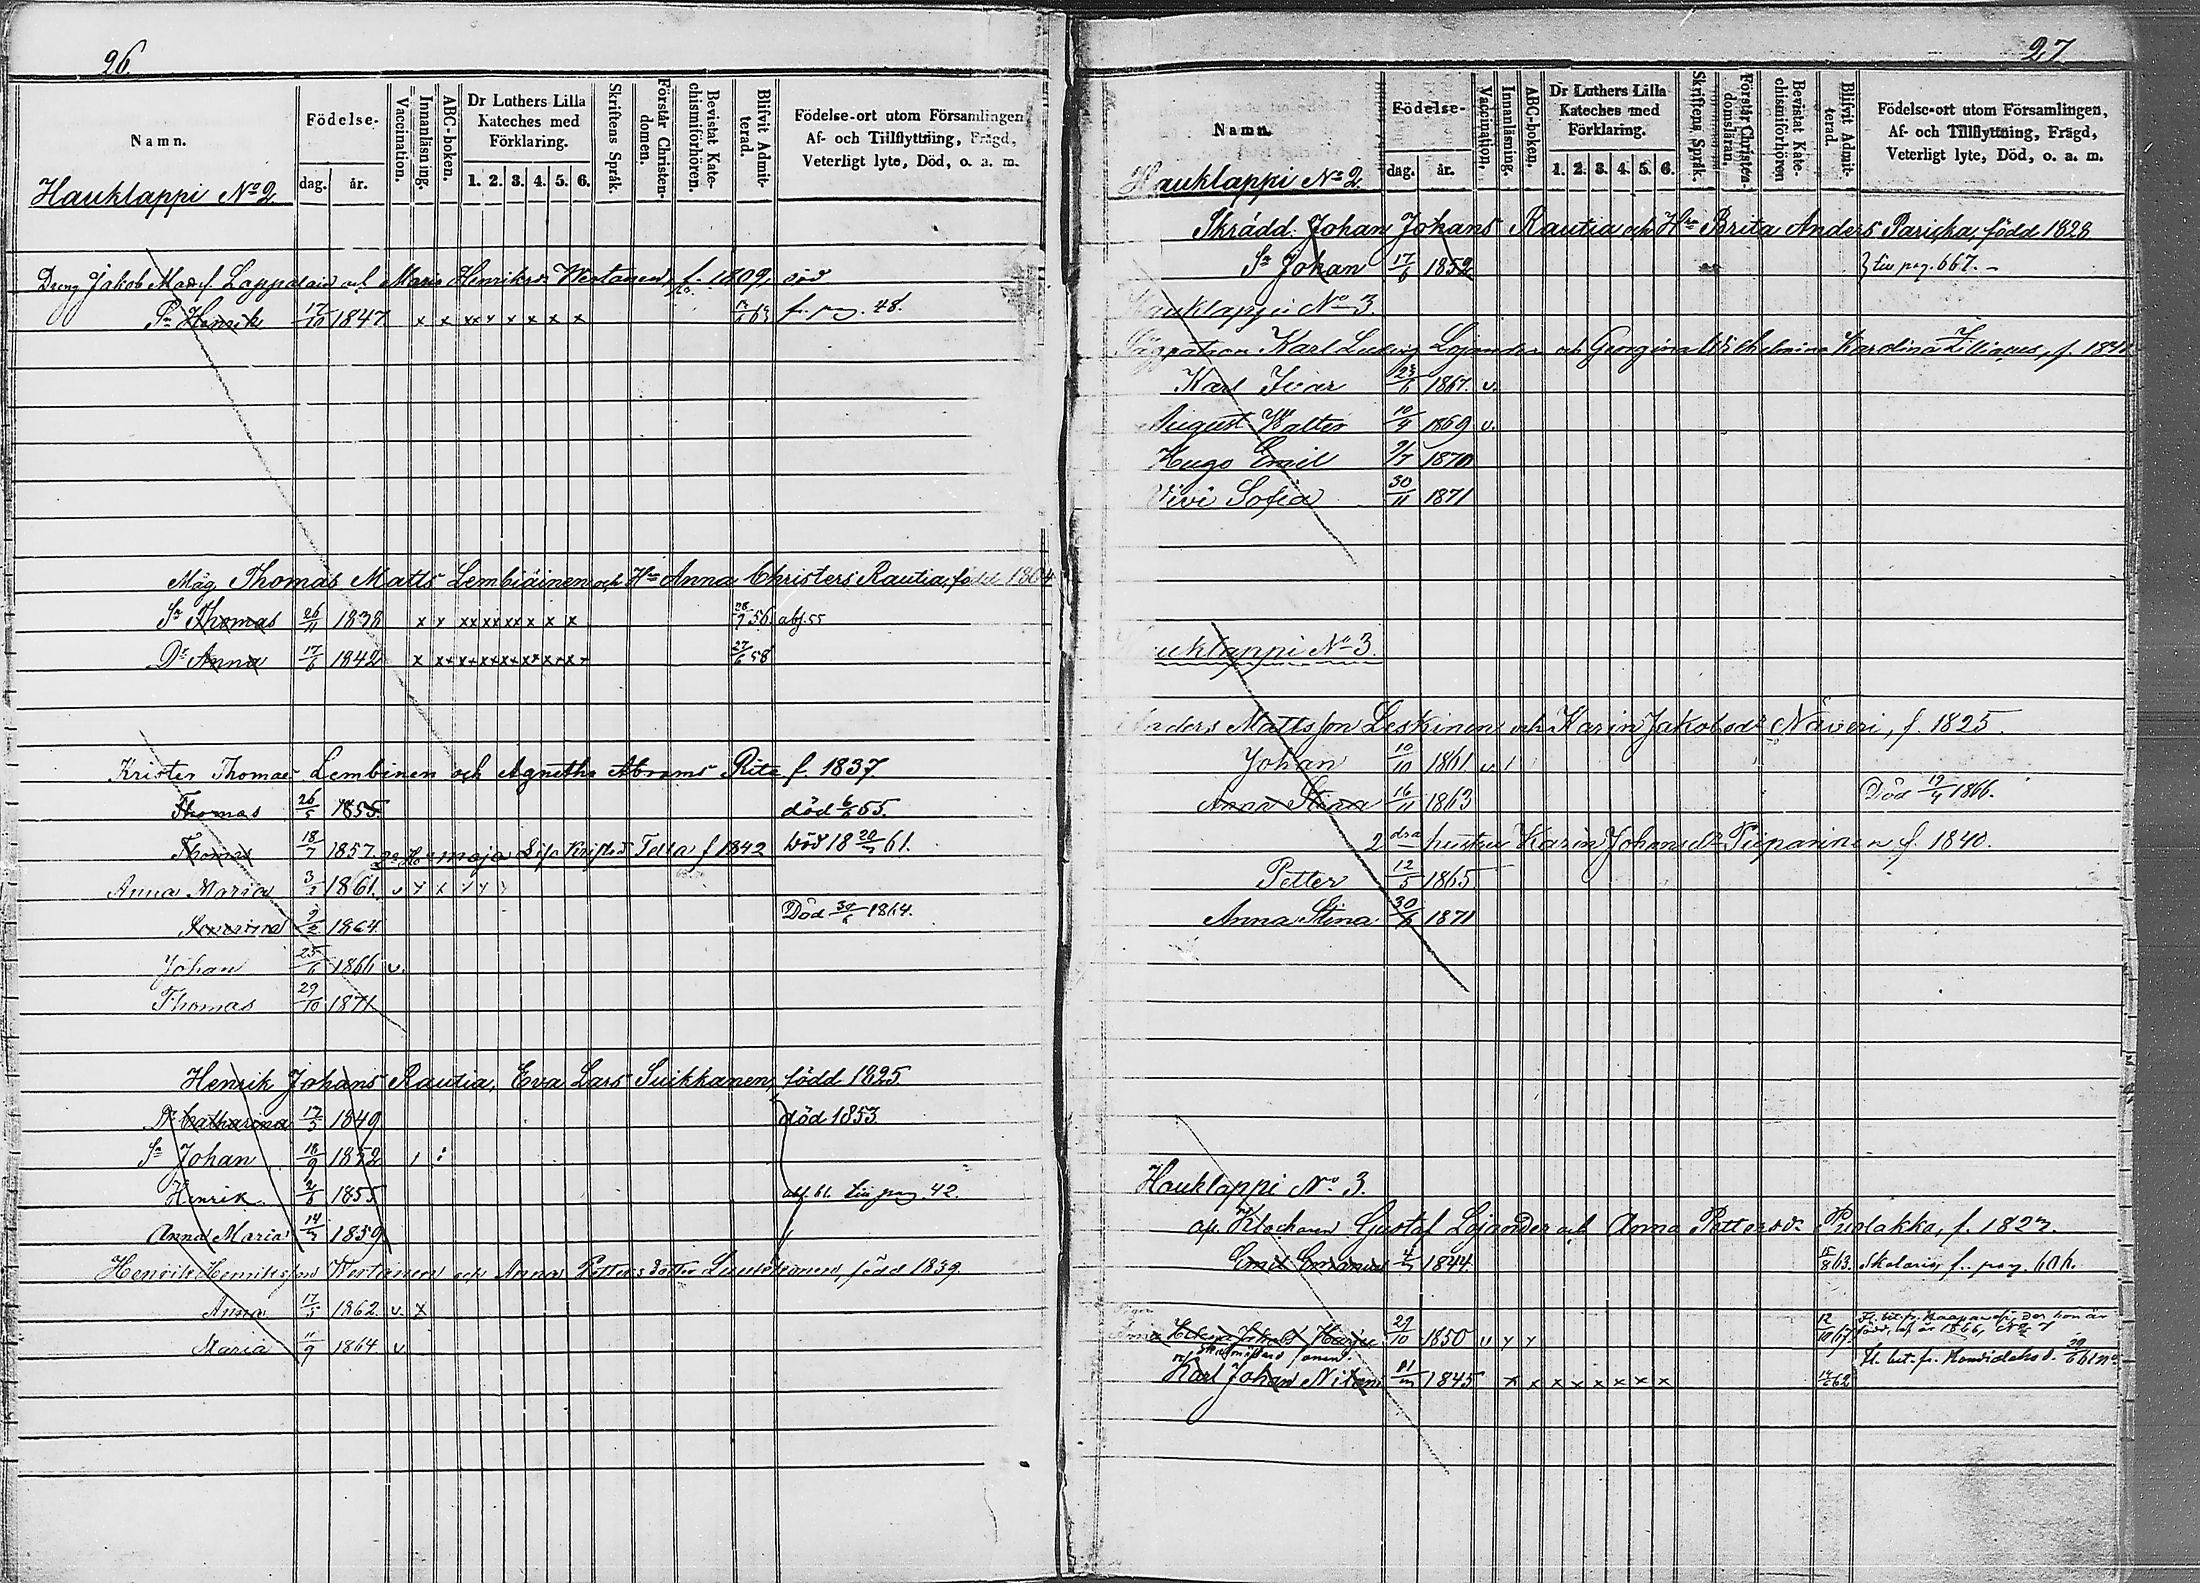 26.
Namn.
Födelse-
dag. år.
Vaccination.
Innanläsning.
ABC-boken.
Dr Luthers Lilla Kateches med Förklaring.
1. 2. 3. 4. 5. 6.
Skriftens Språk.
Förstår Christendomen.
Bevistat Katechismiförhören.
Blifvit Admitterad.
Födelse-ort utom Församlingen,
Af- och Tillflyttning, Frägd,
Veterligt lyte, Död, o. a. m.
Hauklappi No 2
Dreng Jakob Lappalain och Maria Henriksdr Wertanen, f. 1809, död
Sn Henrik 17/10 1847 x x xx x x x x x f. pag. 48.
Måg Thomas Matts Lembiäinen och Hu Anna Christers Rautia, född 1804
Sn Thomas 26/11 1838 x x xx xx xx x x x 28/9 56. abs. 55
Dr Anna 17/6 1842 27/6 58
Krister Thomas Lembinen och Agnetha Abrams Rita f. 1837
Thomas 26/5 1855. död 6/6 55.
Thomas 18/7 1857 maja Lisa f 1842 Död 18 20/7 61.
Anna Maria 3/2 1861. v
Severina 2/2 1864 Död 30/6 1864.
Johan 25/6 1866 v.
Thomas 29/10 1871
Henrik Johans Rautia, Eva Lars Suikkanen, född 1825.
Dr Catharina 17/5 1849 död 1853.
Sn Johan 18/9 1852
Henrik 2/6 1855 abs. 61. till pag. 42.
Anna Maria 14/7 1859
Henrik Henriksson Wertanen och Anna Petters dotter född 1839.
Anna 17/5 1862. v. x
Maria 11/9 1864 v
27
Namn.
Födelse-
dag. år.
Vaccination.
Innanläsning.
ABC-boken.
Dr Luthers Lilla Kateches med Förklaring.
1. 2. 3. 4. 5. 6.
Skriftens Språk.
Förstår Christendomsläran.
Bevistat Katechismiförhören
Blifvit Admitterad.
Födelse-ort utom Församlingen,
Af- och Tillflyttning, Frägd,
Veterligt lyte, Död, o. a. m.
Hauklappi No 2
Skrädd. Johan Johans Rautia och Hu Brita Anders Paricka, född 1828
Sn Johan 17/6 1852 till pag. 667.
Hauklappi No 3.
Sågpatron Karl Ludvig Lojander och Georgina Wilhelmina Karolina Zilliacus, f. 1840
Karl Ivar 23/6 1867. v.
August Walter 10/4 1869 v.
Hugo Emil 9/7 1870
Vivi Sofia 30/11 1871
Hauklappi No 3.
Anders Mattsson Leskinen och Karin Jakobsdr Näveri, f. 1825.
Johan 10/10 1861 v
Anna Stina 16/11 1863 Död 19/4 1866.
2dra hustru Karin Johansdr Piiparinen f. 1840.
Petter 12/5 1865
Anna Stina 30/6 1871
Hauklappi No 3.
Gustaf Lojander och Anna Pettersdr Puolakka, f. 1827.
Emil 1844 15/8 63. Skolaris, f. pag. 606.
29/10 1850 v 12/10 67
Karl Johan 1845 x x x x x x x x 62